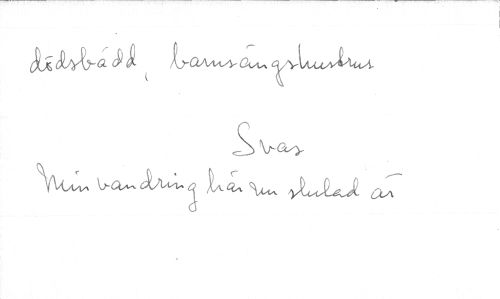 dödsbädd, barnsängshustrus
Svar
Min vandring här nu slutad är